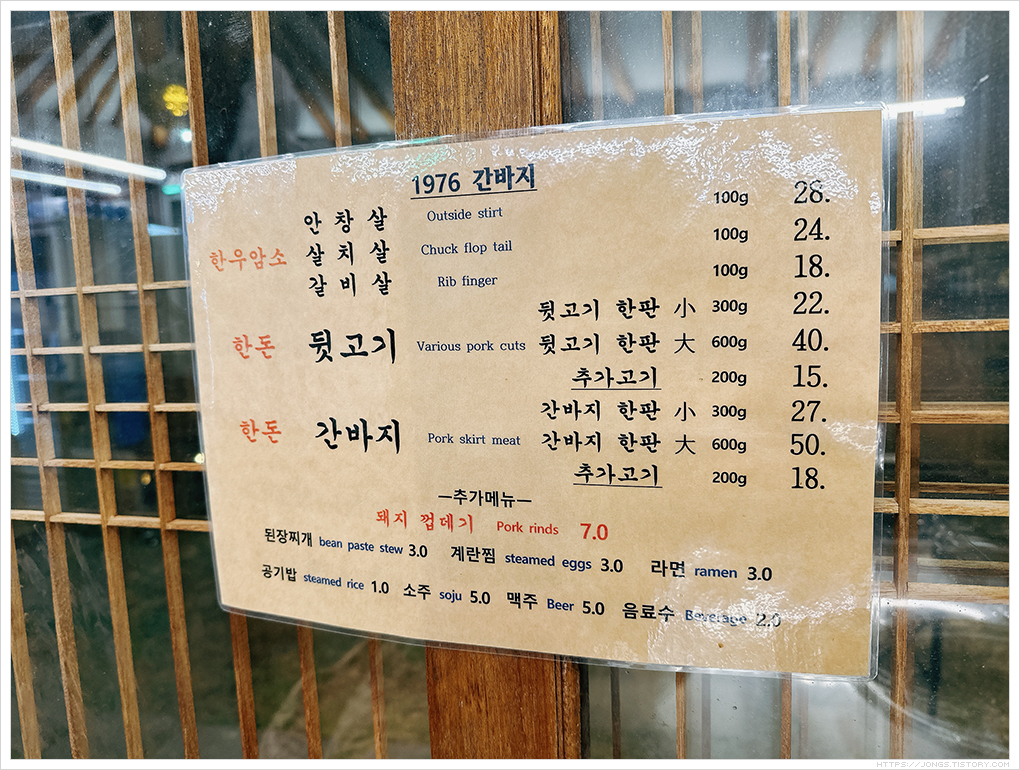 1976 간바지
한우암소 안창살 Outside stirt 100g 28.
살치살 Chuck flop tail 100g 24.
갈비살 Rib finger 100g 18.
뒷고기 한판 小 300g 22.
한돈 뒷고기 Various pork cuts 뒷고기 한판 大 600g 40.
추가고기 200g 15.
간바지 한판 小 300g 27.
한돈 간바지 Pork skirt meat 간바지 한판 大 600g 50.
추가고기 200g 18.
—추가메뉴—
돼지 껍데기 Pork rinds 7.0
된장찌개 bean paste stew 3.0 계란찜 steamed eggs 3.0 라면 ramen 3.0
공기밥 steamed rice 1.0 소주 soju 5.0 맥주 Beer 5.0 음료수 Beverage 2.0
HTTPS://JONGS.TISTORY.COM